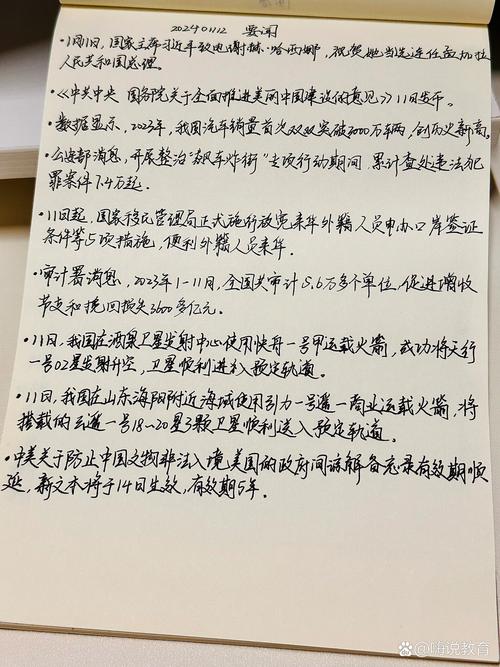 20240112 要闻
·1月11日,国家主席习近平致电谢赫·哈西娜,祝贺她当选连任孟加拉
人民共和国总理。
·《中共中央 国务院关于全面推进美丽中国建设的意见》11日发布。
·数据显示,2023年,我国汽车销量首次双双突破3000万车两,创历史新高。
·公安部消息,开展整治"飙车炸街"专项行动期间,累计查处违法犯
罪案件7.4万起.
·11日起,国家移民管理局正式施行放宽来华外籍人员申办口岸签证
条件等5项措施,便利外籍人员来华.
·审计署消息,2023年1-11月,全国共审计5.6万多个单位,促进增收
节支和挽回损失3600多亿元。
·11日,我国在酒泉卫星发射中心使用快舟一号甲运载火箭,成功将天行
一号02星发射升空,卫星顺利进入预定轨道。
·11日,我国在山东海阳附近海域使用引力一号遥一商业运载火箭,将
搭载的云遥一号18-20星3颗卫星顺利送入预定轨道。
·中美关于防止中国文物非法入境美国的政府间谅解备忘录有效期顺
延,新文本将于14日生效,有效期5年.
嗨说教育